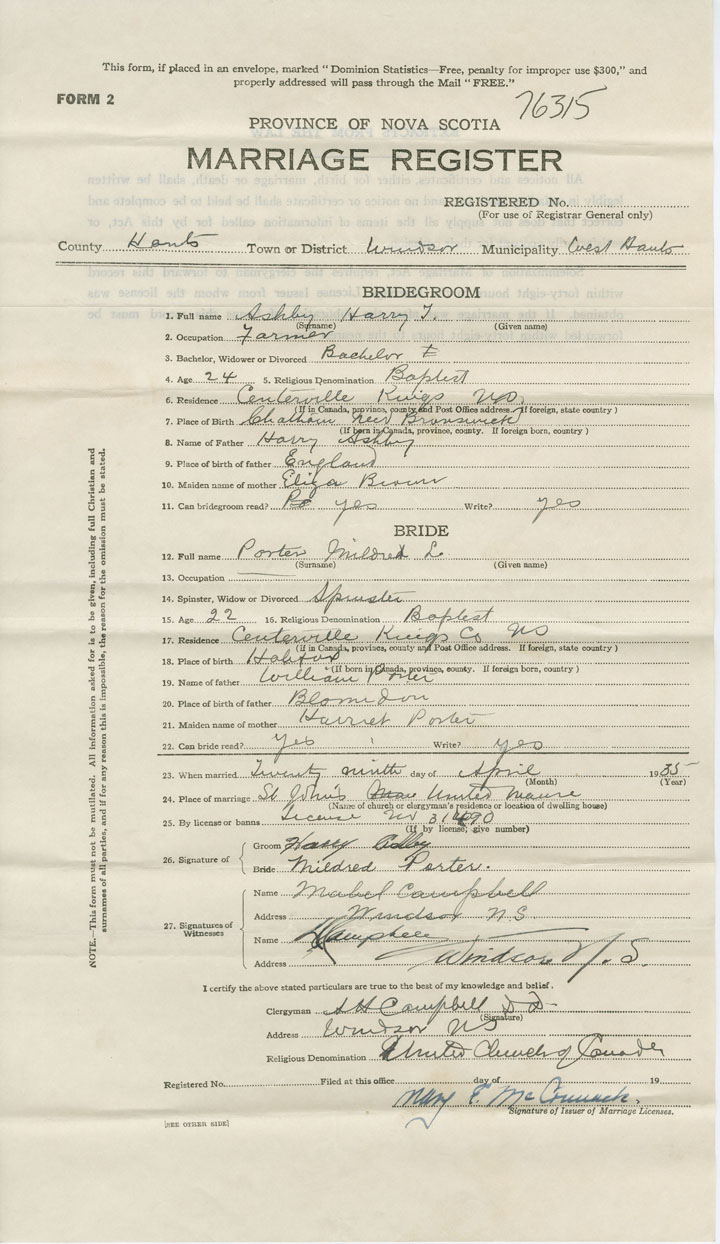 This form, if placed in an envelope, marked "Dominion Statistics—Free, penalty for improper use $300," and
properly addressed will pass through the Mail "FREE."
FORM 2
76315
PROVINCE OF NOVA SCOTIA
MARRIAGE REGISTER
REGISTERED No.
(For use of Registrar General only)
County Hants Town or District Windsor Municipality West Hants
BRIDEGROOM
1. Full name Ashby Harry T.
(Surname) (Given name)
2. Occupation Farmer
3. Bachelor, Widower or Divorced Bachelor
4. Age 24 5. Religious Denomination Baptist
6. Residence Centerville Kings NS.
(If in Canada, province, county and Post Office address. If foreign, state country)
7. Place of Birth Chatham New Brunswick
(If born in Canada, province, county. If foreign born, country)
8. Name of Father Harry Ashby
9. Place of birth of father England
10. Maiden name of mother Eliza Brown
11. Can bridegroom read? yes Write? yes
BRIDE
12. Full name Porter Mildred L.
(Surname) (Given name)
13. Occupation
14. Spinster, Widow or Divorced Spinster
15. Age 22 16. Religious Denomination Baptist
17. Residence Centerville Kings Co NS
(If in Canada, province, county and Post Office address. If foreign, state country)
18. Place of birth Halifax
(If born in Canada, province, county. If foreign born, country)
19. Name of father William Porter
20. Place of birth of father Blomidon
21. Maiden name of mother Harriet Porter
22. Can bride read? yes Write? yes
23. When married Twenty ninth day of April 1935
(Month) (Year)
24. Place of marriage St John's United Manse
(Name of church or clergyman's residence or location of dwelling house)
25. By license or banns License No 31490
(If by license, give number)
26. Signature of
Groom Harry Ashby
Bride Mildred Porter.
27. Signatures of Witnesses
Name Mabel Campbell
Address Windsor N.S.
Name Campbell
Address Windsor N.S.
I certify the above stated particulars are true to the best of my knowledge and belief.
Clergyman A H Campbell D D
(Signature)
Address Windsor NS
Religious Denomination United Church of Canada
Registered No. Filed at this office day of 19
Mary E. McCormack.
Signature of Issuer of Marriage Licenses.
[SEE OTHER SIDE]
NOTE.—This form must not be mutilated. All information asked for is to be given, including full Christian and
surnames of all parties, and if for any reason this is impossible, the reason for the omission must be stated.